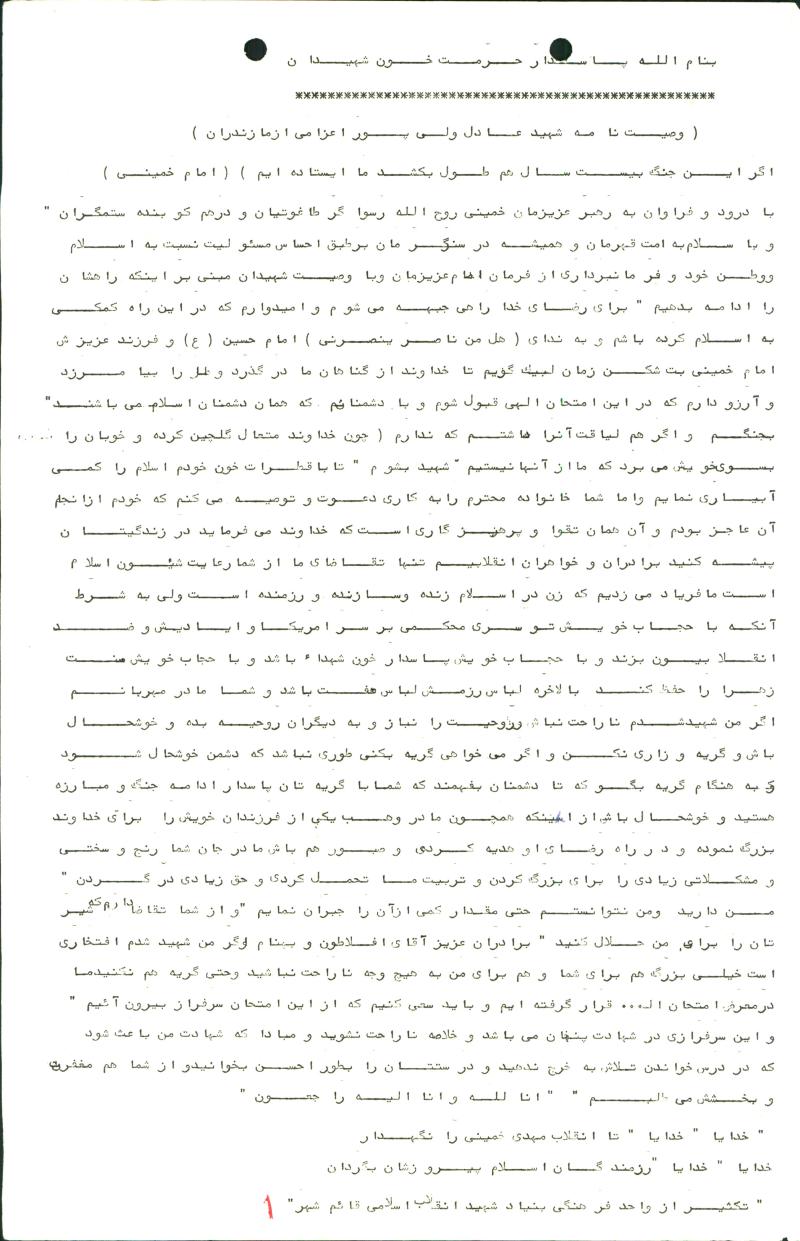 بنام الله پاسدار حرمت خون شهیدان
************************************************************
( وصیت نامه شهید عادل ولی پور اعزامی ازمازندران )
اگر این جنگ بیست سال هم طول بکشد ما ایستاده ایم ) ( امام خمینی )
با درود و فراوان به رهبر عزیزمان خمینی روح الله رسوا گر طاغوتیان و درهم کوبنده ستمگران "
و با سلام به امت قهرمان و همیشه در سنگر مان برطبق احساس مسئولیت نسبت به اسلام
ووطن خود و فرمانبرداری از فرمان امام عزیزمان وبا وصیت شهیدان مبنی بر اینکه راهشان
را ادامه بدهیم " برای رضای خدا راهی جبهه می شوم و امیدوارم که در این راه کمکی
به اسلام کرده باشم و به ندای ( هل من ناصر ینصرنی ) امام حسین ( ع ) و فرزند عزیزش
امام خمینی بت شکن زمان لبیك گویم تا خداوند از گناهان ما در گذرد و ما را بیا مرزد
و آرزو دارم که در این امتحان الهی قبول شوم و با دشمنانم که همان دشمنان اسلام می باشند "
بجنگم و اگر هم لیاقت آنرا داشتم که ندارم ( چون خداوند متعال گلچین کرده و خوبان را ......
بسوی خویش می برد که ما از آنها نیستیم " شهید بشوم " تا با قطرات خون خودم اسلام را کمی
آبیاری نمایم واما شما خانواده محترم را به کاری دعوت و توصیه می کنم که خودم ازانجام
آن عاجز بودم و آن همان تقوا و پرهیز گاری است که خداوند می فرماید در زندگیتان
پیشه کنید برادران و خواهران انقلابیم تنها تقاضای ما از شما رعایت شئون اسلام
است ما فریاد می زدیم که زن در اسلام زنده وسازنده و رزمنده است ولی به شرط
آنکه با حجاب خویش تو سری محکمی بر سر امریکا و ایادیش و ضد
انقلا بیون بزند و با حجاب خویش پاسدار خون شهداء باشد و با حجاب خویش سنت
زهرا را حفظ کند بالاخره لباس رزمش لباس عفت باشد و شما مادر مهربانم
اگر من شهید شدم ناراحت نباش وروحیت را نباز و به دیگران روحیه بده و خوشحال
باش و گریه و زاری نکن و اگر می خواهی گریه بکنی طوری نباشد که دشمن خوشحال شود
و به هنگام گریه بگو که تا دشمنان بفهمند که شما با گریه تان پاسدار ادامه جنگ و مبارزه
هستید و خوشحال باش از اینکه همچون مادر وهب یکی از فرزندان خویش را برای خداوند
بزرگ نموده و در راه رضای او هدیه کردی و صبور هم باش مادر جان شما رنج و سختی
و مشکلاتی زیادی را برای بزرگ کردن و تربیت ما تحمل کردی و حق زیادی در گردن "
من دارید ومن نتوانستم حتی مقدار کمی ازآن را جبران نمایم "و از شما تقاضا دارم که شیر
تان را برای من حلال کنید " برادران عزیز آقای افلاطون و بهنام اگر من شهید شدم افتخاری
است خیلی بزرگ هم برای شما و هم برای من به هیچ وجه ناراحت نباشید وحتی گریه هم نکنیدما
درمعرض امتحان ال... قرار گرفته ایم و باید سعی کنیم که از این امتحان سرفراز بیرون آئیم "
و این سرفرازی در شهادت پنهان می باشد و خلاصه ناراحت نشوید و مبادا که شهادت من باعث شود
که در درس خواندن تلاش به خرج ندهید و در ستتان را بطور احسن بخوانیدو از شما هم مغفرت
و بخشش می طلبم " " انا لله و انا الیه را جعون "
" خدایا " خدایا " تا انقلاب مهدی خمینی را نگهدار
خدایا " خدایا "رزمندگان اسلام پیروزشان بگردان
" تکثیر از واحد فرهنگی بنیاد شهید انقلاب اسلامی قائم شهر" ۱